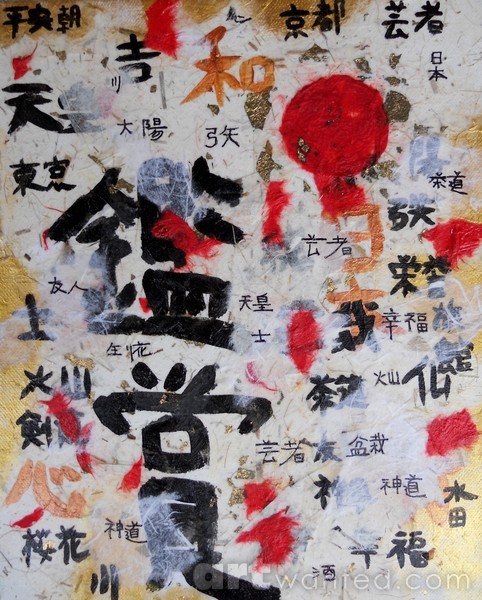 平安朝
京都
芸者
吉
和
川
日本
天
大陽
弓矢
東京
茶道
鑑賞
芸者
日本
栄
友人
天皇
士
幸福
士
生花
火山
火山
仏
剣
茶道
心
芸者
友
盆栽
神
神道
水田
桜花
神道
幸福
川
酒
artwanted.com